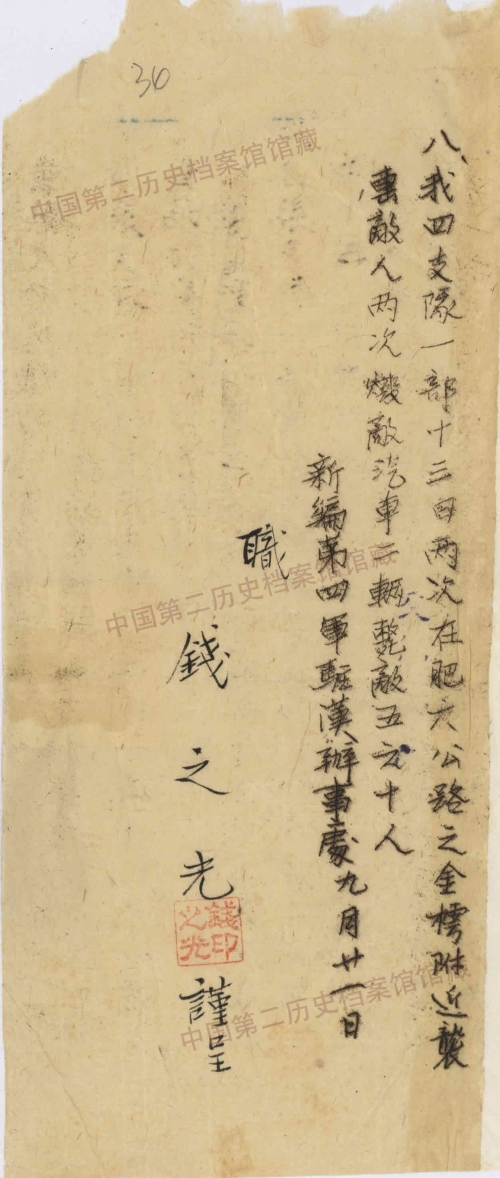 30
八、我四支隊一部十三日两次在肥六公路之金橋附近襲
擊敵人两次燬敵汽車二輛斃敵五六十人
新編第四軍駐漢辦事處九月廿一日
職
錢之光謹呈
錢印之光
中国第二历史档案馆馆藏
中国第二历史档案馆馆藏
中国第二历史档案馆馆藏